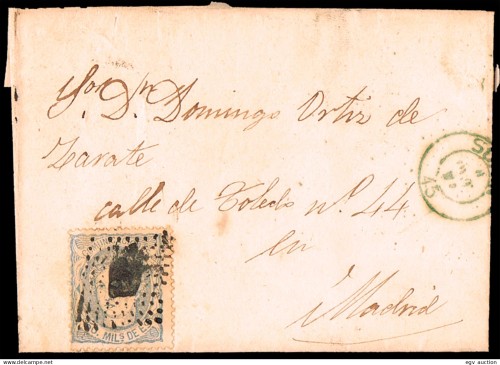 Sor. Dn. Domingo Ortiz de
Zarate
calle de Toledo nº. 44
en
Madrid
45
MILS DE E
delcampe.net
egv auction